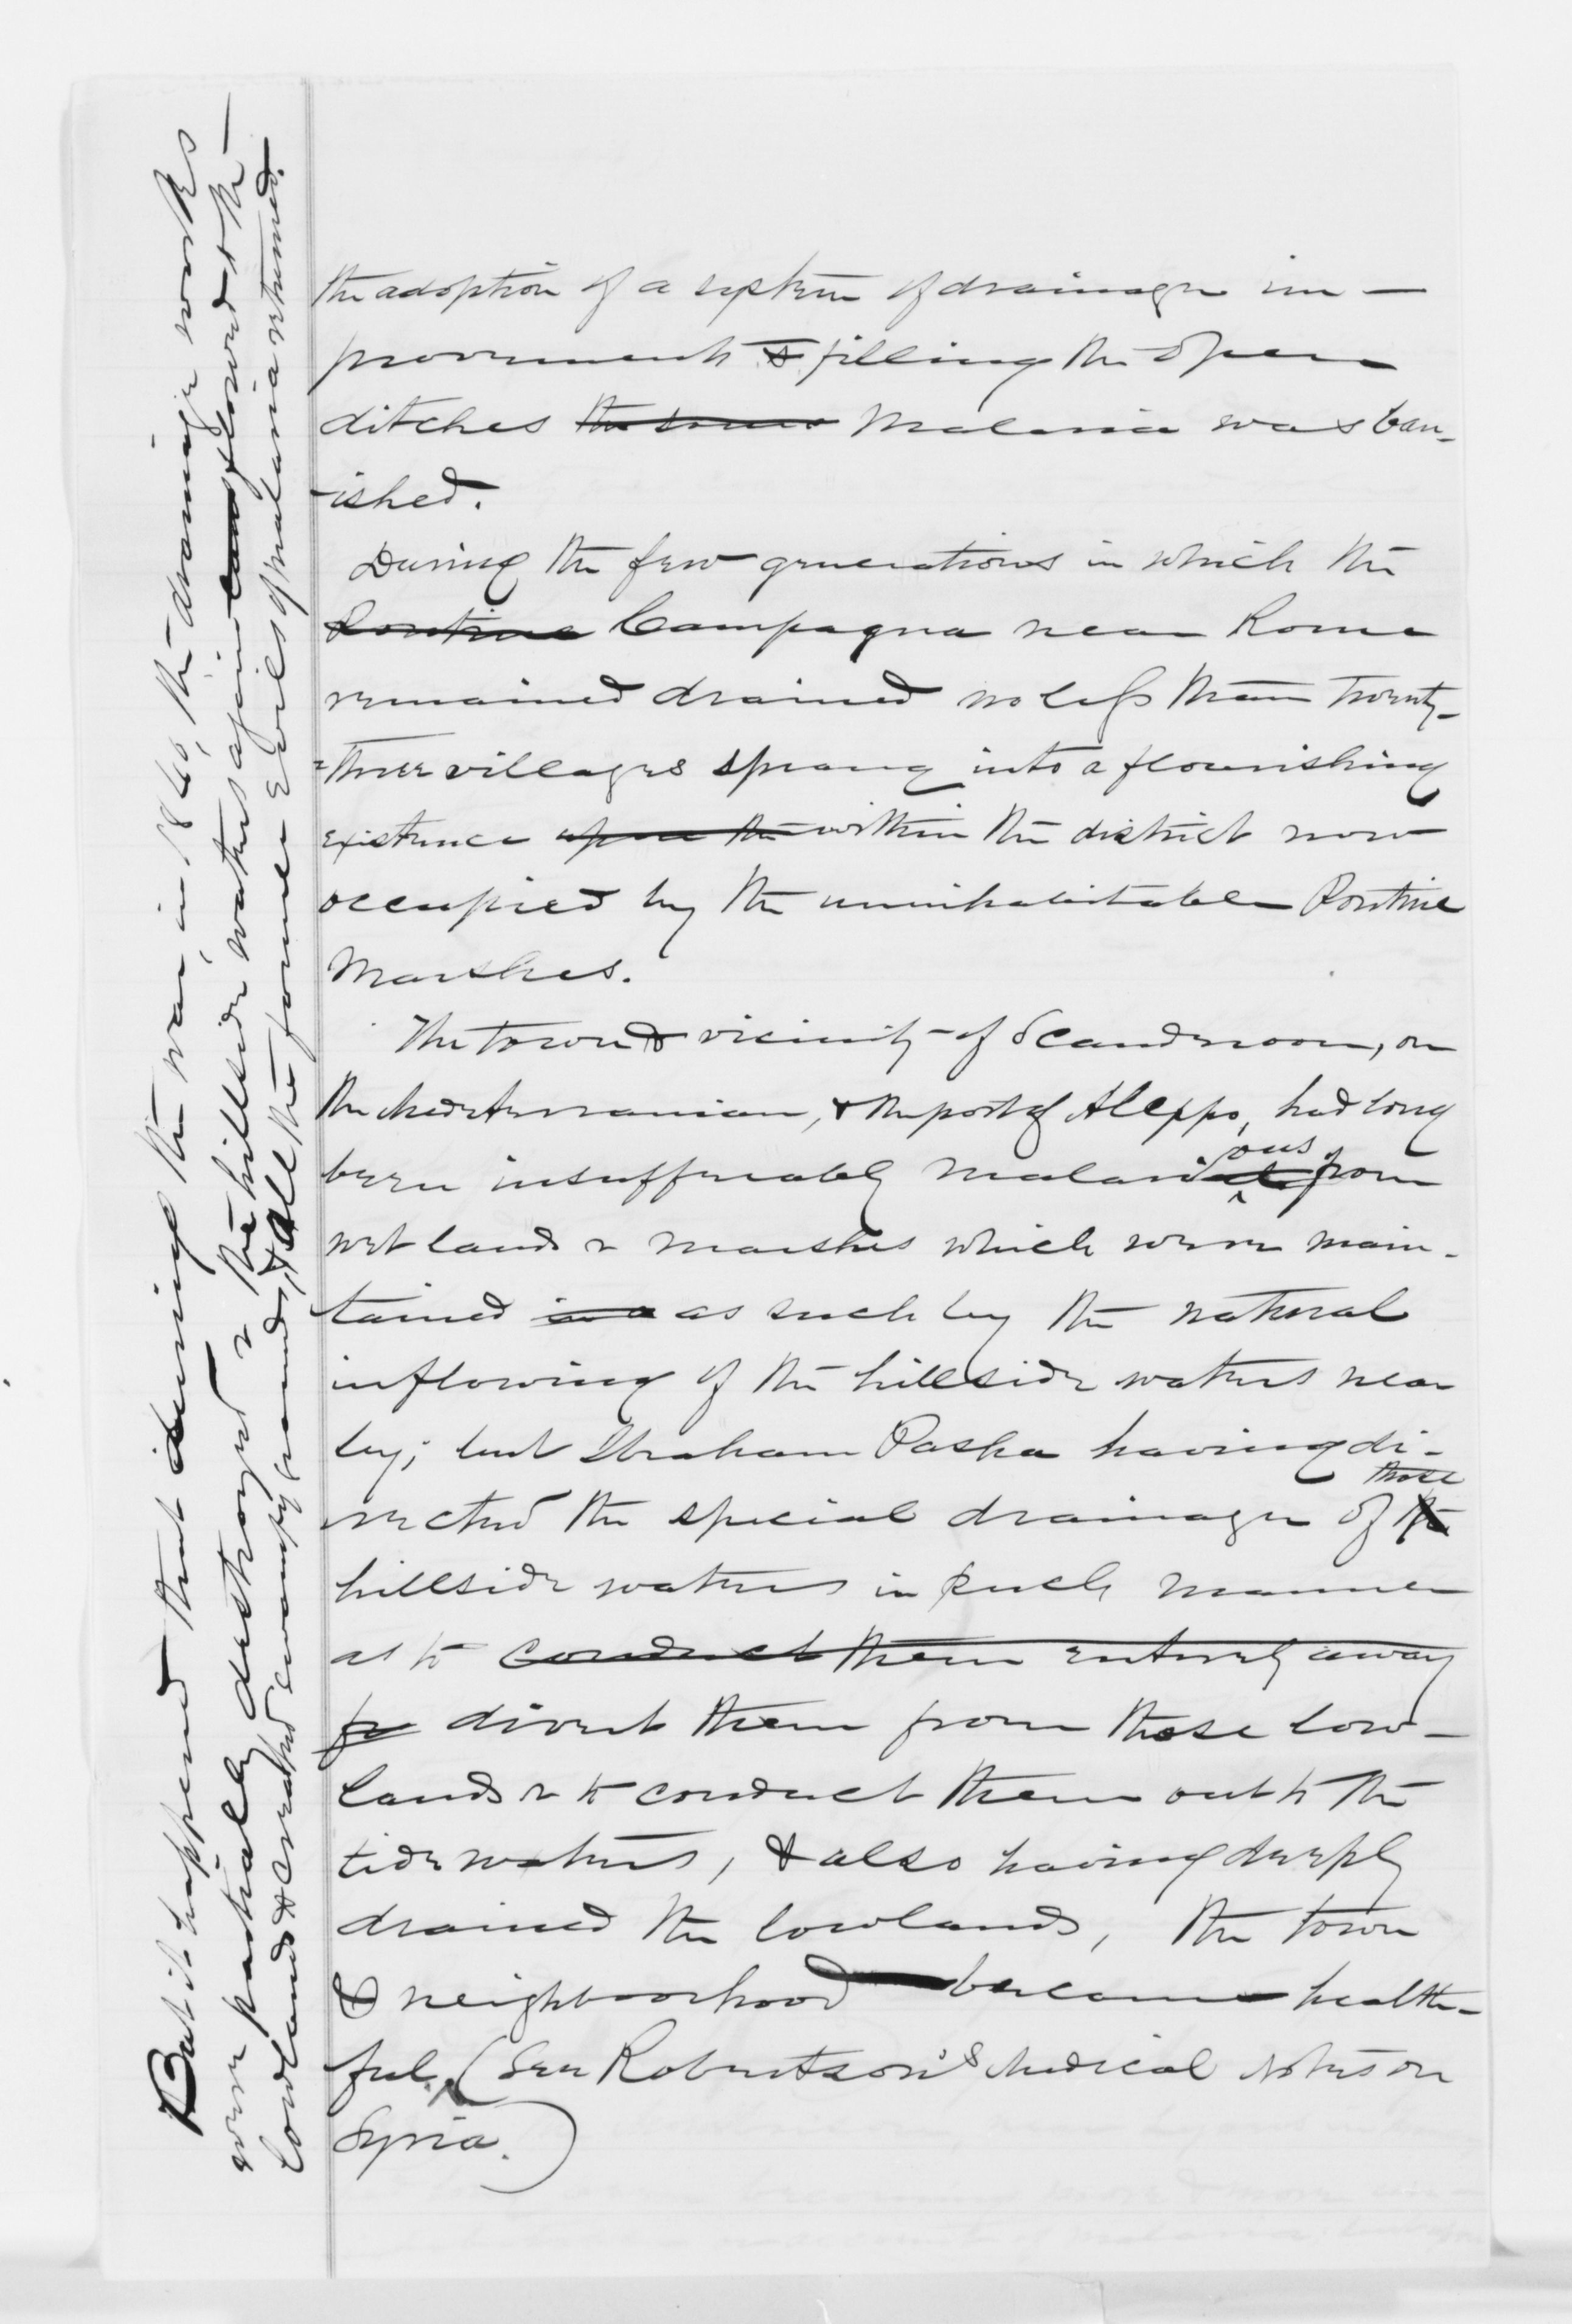 the adoption of a system of drainage im-
provements & filling the open
ditches the town Malaria was ban-
-ished.
During the few generations in which the
Pontine Campagna near Rome
remained drained no less than twenty-
-three villages sprang into a flourishing
existence upon the within the district now
occupied by the uninhabitable Pontine
Marshes.
The town & vicinity of Scanderoon, on
the Mediterranian, & the port of Aleppo, had long
ous
been insufferably malarial from
wet lands & marshes which were main-
tained in a as such by the natural
inflowing of the hillside waters near
by; but Ibraham Pasha having di-
those
rected the special drainage of the
hillside waters in such manner
as to conduct them entirely away
fr divert them from these low-
lands & to conduct them out to the
tide waters, & also having deeply
drained the lowlands, the town
& neighborhood became health-
ful. (See Robertson's Medical Notes on
Syria.)
But it happened that during the war, in 1840, the drainage works
were partially destroyed & the hillside waters again overflowed the
lowlands & created swampy grounds, & all the former evils of malaria returned.